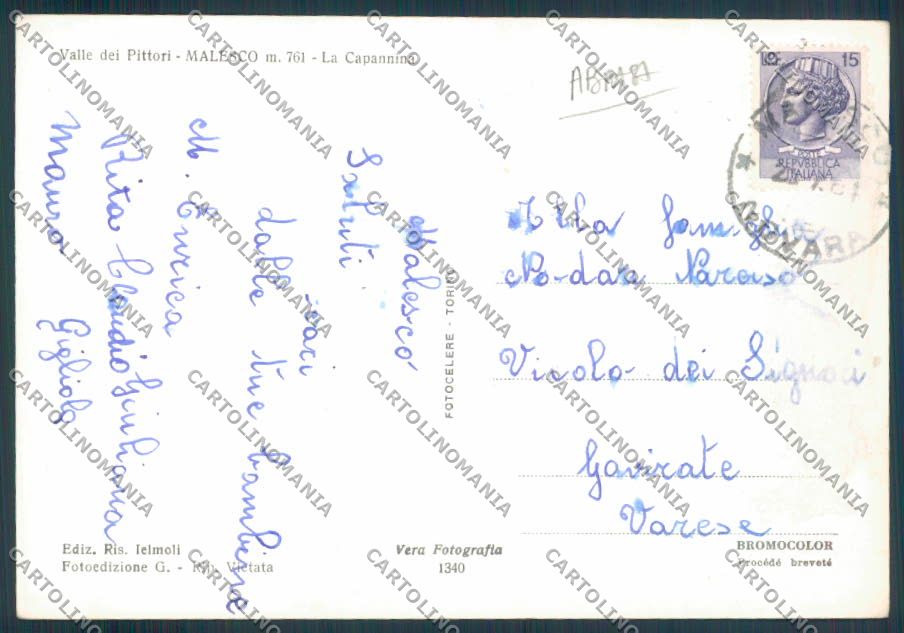 Valle dei Pittori - MALESCO m. 761 - La Capannina
15
POSTE
REPVBBLICA
ITALIANA
NOVARA
Malesco
Saluti cari
dalle tue bambine
M. Enrica
Rita Claudio Giuliana
Maura Gigliola
FOTOCELERE - TORINO
Alla famiglia
Vicolo dei Signori
Gavirate
Varese
Ediz. Ris. Ielmoli
Fotoedizione G. - Rip. Vietata
Vera Fotografia
1340
BROMOCOLOR
Procédé breveté
CARTOLINOMANIA